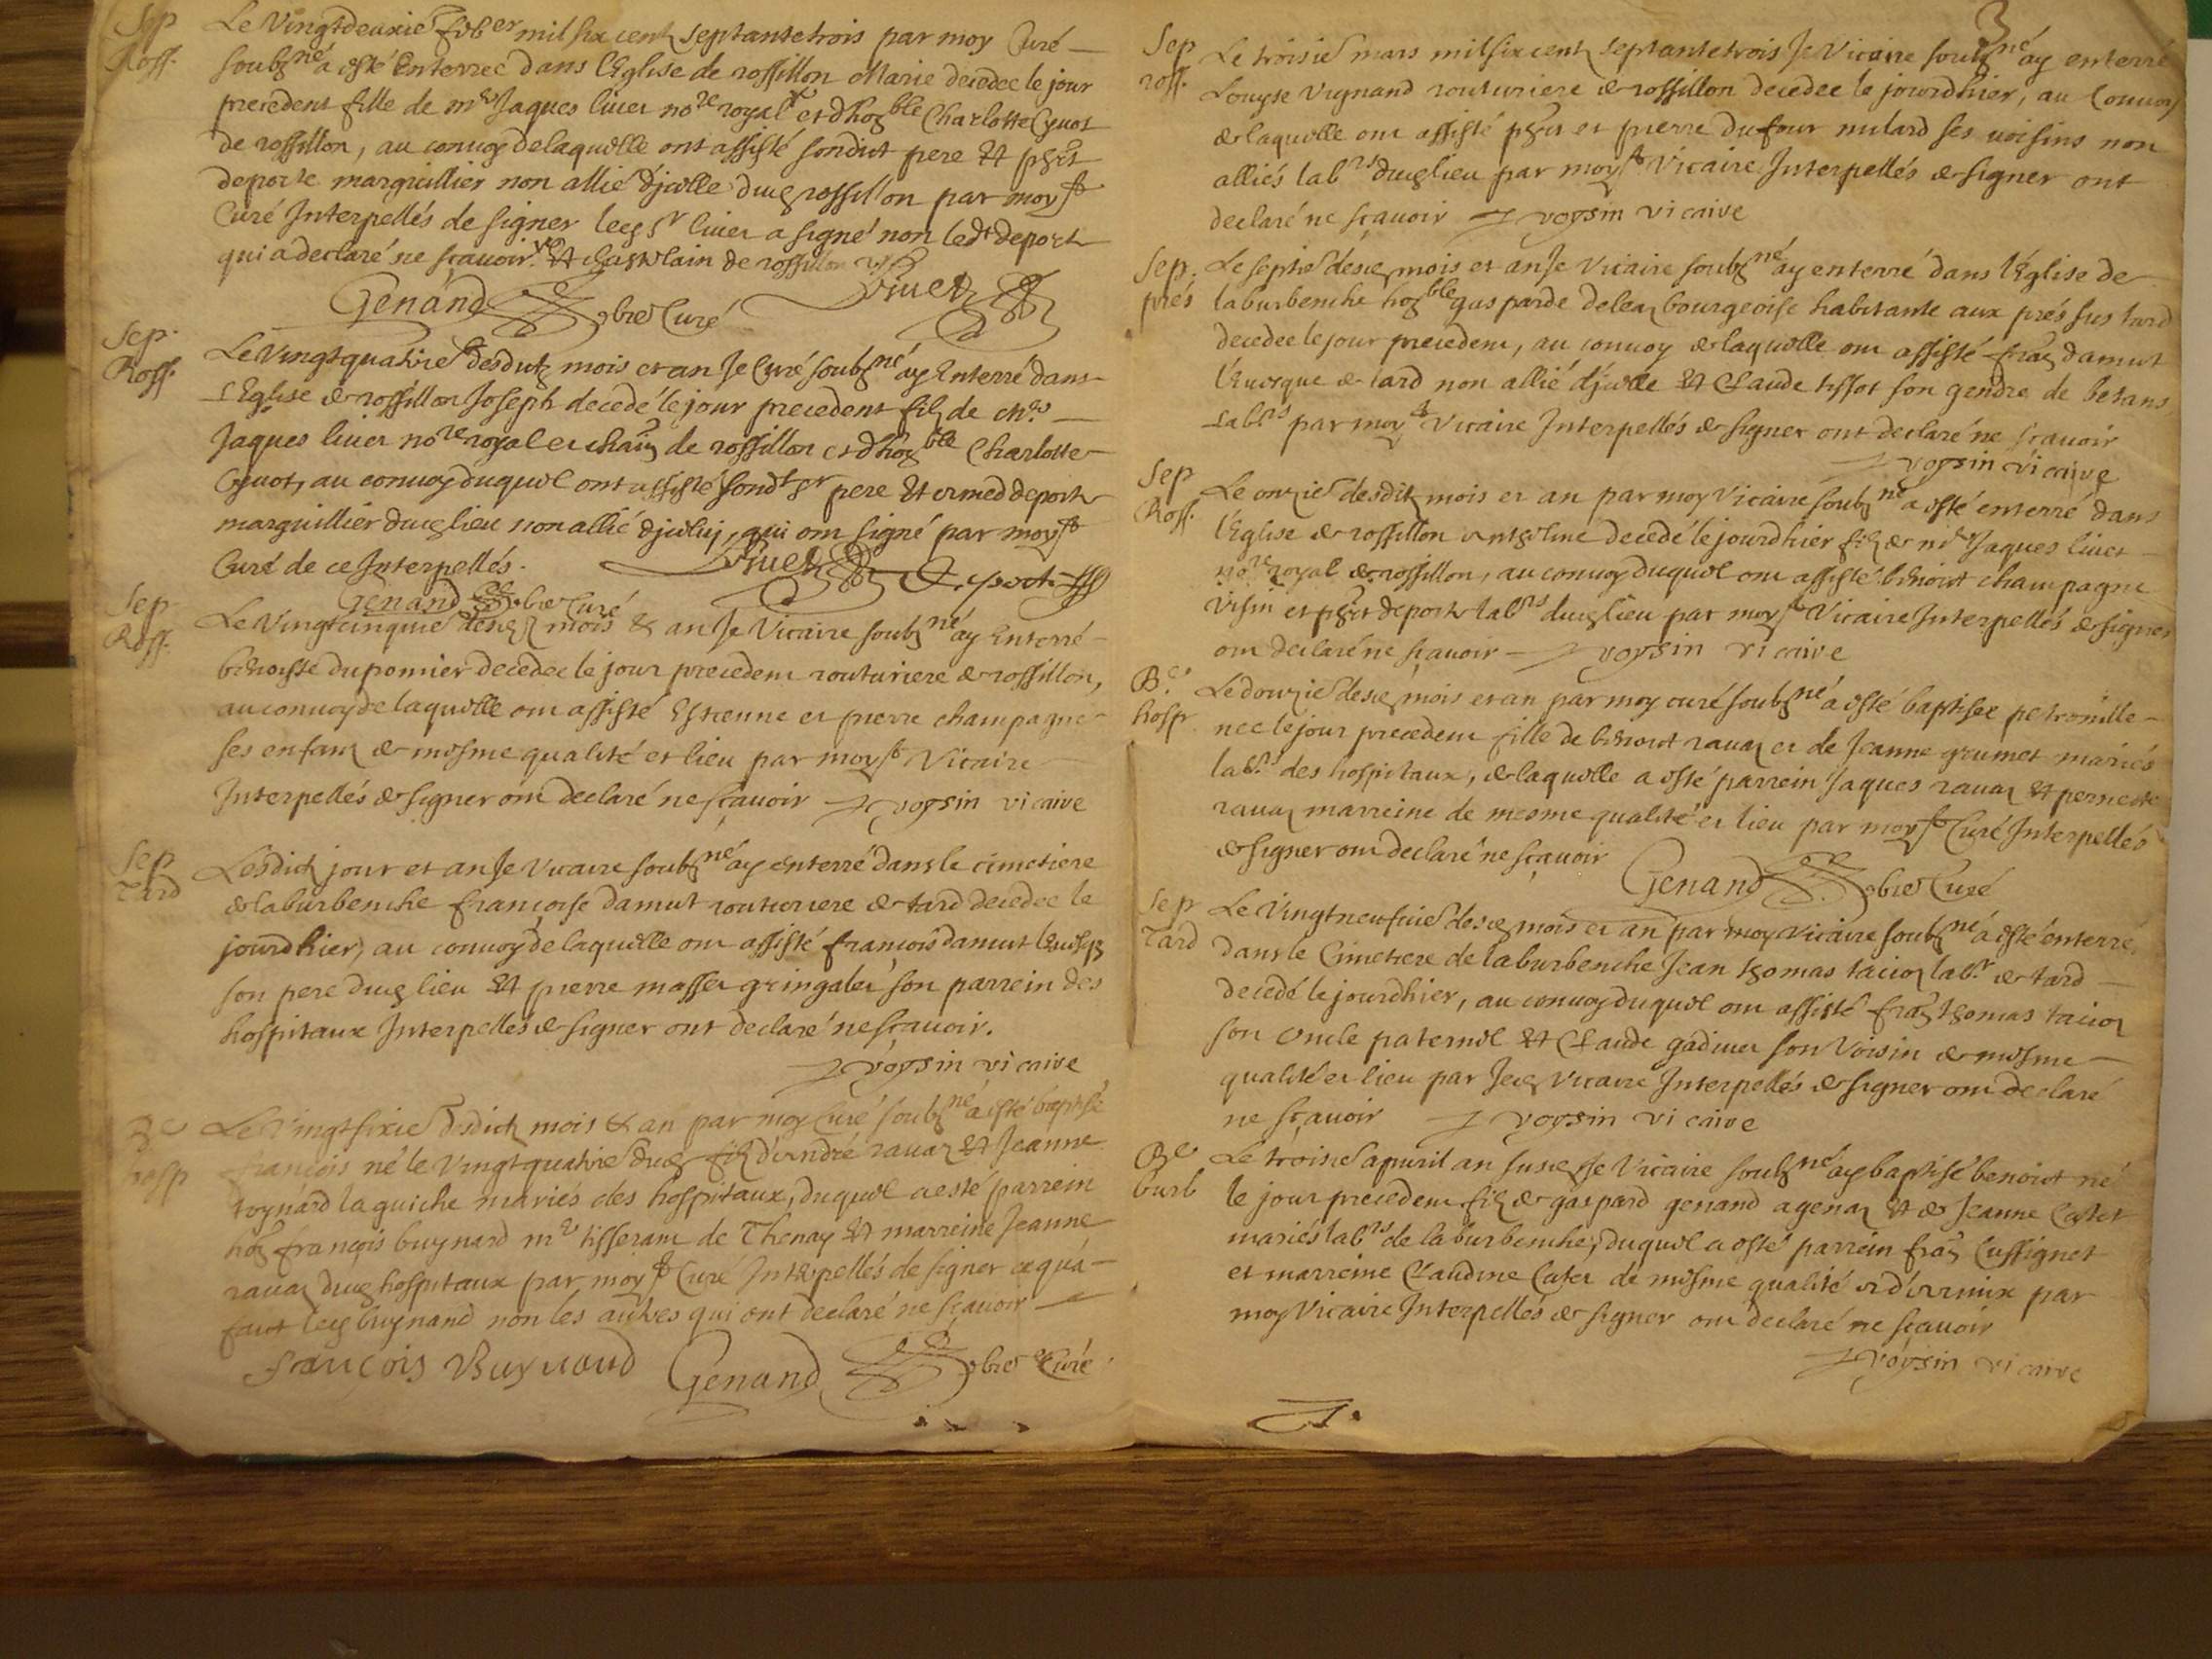 Sep
Ross.
Le Vingtdeuxie feber mil six cent septantetrois par moy Curé
soubzné a esté Enterrée dans l'Eglise de rossillon Marie decedée le jour
precedent fille de mre Jaques liuet nore royal et d'hoeble Charlotte Cyuot
de rossillon, au conuoy de laquelle ont assisté sondict pere et
deporte marguillier non allié d'jcelle dud rossillon par moy sd
Curé Interpellés de signer led sr liuet a signé non led deporte
qui a declaré ne sçauoir. et chastelain de rossillon
Genand pbre Curé Liuet
Sep.
Ross.
Le Vingtquatrie desdictz mois et an Je Curé soubzné ay Enterré dans
l'Eglise de rossillon Joseph decedé le jour precedent filz de Mre
Jaques liuet nore royal et de rossillon et d'hoeble Charlotte
Cyuot, au conuoy duquel ont assisté sondt sr pere et deporte
marguillier dud lieu non allié d'jceluj, qui ont signé par moy sd
Curé de ce Interpellés. Liuet Deporte
Genand pbre Curé
Sep
Ross.
Le Vingtcinquie desd mois & an Je Vicaire soubzné ay Enterré
benoiste dupomier decedée le jour precedent routuriere de rossillon,
au conuoy de laquelle ont assisté Estienne et pierre champagne
ses enfans de mesme qualité et lieu par moy sd Vicaire
Interpellés de signer ont declaré ne sçauoir voysin vicaire
Sep
Tard
Lesdictz jour et an Je Vicaire soubzné ay enterré dans le cimetiere
de laburbenche françoise damut routuriere de tard decedée le
jourdhier, au conuoy de laquelle ont assisté françois damut
son pere dud lieu et pierre masset gringalet son parrein des
hospitaux Interpellés de signer ont declaré ne sçauoir.
voysin vicaire
Be
hosp
Le Vingtsixie desdictz mois & an par moy Curé soubzné a esté baptisé
françois né le Vingtquatrie dud filz d'André rauaz et Jeanne
toynard laguiche mariés des hospitaux, duquel a esté parrein
françois buynand me tisserant de Thenay et marreine Jeanne
rauaz dud hospitaux par moy sd Curé Interpellés de signer ce qu'a
faict led buynand non les autres qui ont declaré ne sçauoir
françois Buynand Genand pbre Curé
3
Sep
ross.
Le troisie mars mil six cent septantetrois Je Vicaire soubzné ay enterré
Louyse Vugnand routuriere de rossillon decedée le jourdhier, au Conuoy
de laquelle ont assisté et pierre dufour mulard ses uoisins non
alliés labrs dud lieu par moy sd Vicaire Interpellés de signer ont
declaré ne sçauoir voysin vicaire
Sep.
prés
Le septie desd mois et an Je Vicaire soubzné ay enterré dans l'Eglise de
laburbenche hoeble gasparde deleaz bourgeoise habitante aux prés sus tard
decedée le jour precedent, au conuoy de laquelle ont assisté damut
l'Euesque de tard non allié d'jcelle et Claude tissot son gendre de betans
Labrs par moy sd Vicaire Interpellés de signer ont declaré ne sçauoir
voysin vicaire
Sep
Ross.
Le onzie desdictz mois et an par moy Vicaire soubzné a esté enterré dans
l'Eglise de rossillon Anthelme decedé le jourdhier filz de mre Jaques liuet
nore royal de rossillon, au conuoy duquel ont assisté benoict champagne
Visin et deporte labrs dud lieu par moy sd Vicaire Interpellés de signer
ont declaré ne sçauoir voysin vicaire
Be
hosp
Le douzie desd mois et an par moy curé soubzné a esté baptisée petronille
née le jour precedent fille de benoict rauaz et de Jeanne grumet mariés
labrs des hospitaux, de laquelle a esté parrein Jaques rauaz et pernette
rauaz marreine de mesme qualité et lieu par moy sd Curé Interpellés
de signer ont declaré ne sçauoir Genand pbre Curé
Sep
Tard
Le Vingtneufuie desd mois et an par moy Vicaire soubzné a esté enterré
dans le Cimetiere de laburbenche Jean thomas tacioz labr de tard
decedé le jourdhier, au conuoy duquel ont assisté thomas tacioz
son oncle paternel et Claude gadiuet son Voisin de mesme
qualité et lieu par Jed Vicaire Interpellés de signer ont declaré
ne sçauoir voysin vicaire
Be
burb
Le troisie apuril an susd Je Vicaire soubzné ay baptisé benoict né
le jour precedent filz de gaspard genand agenaz et de Jeanne Catet
mariés labrs de laburbenche, duquel a esté parrein Cussignet
et marreine Claudine Catet de mesme qualité et d'armix par
moy Vicaire Interpellés de signer ont declaré ne sçauoir
voysin vicaire